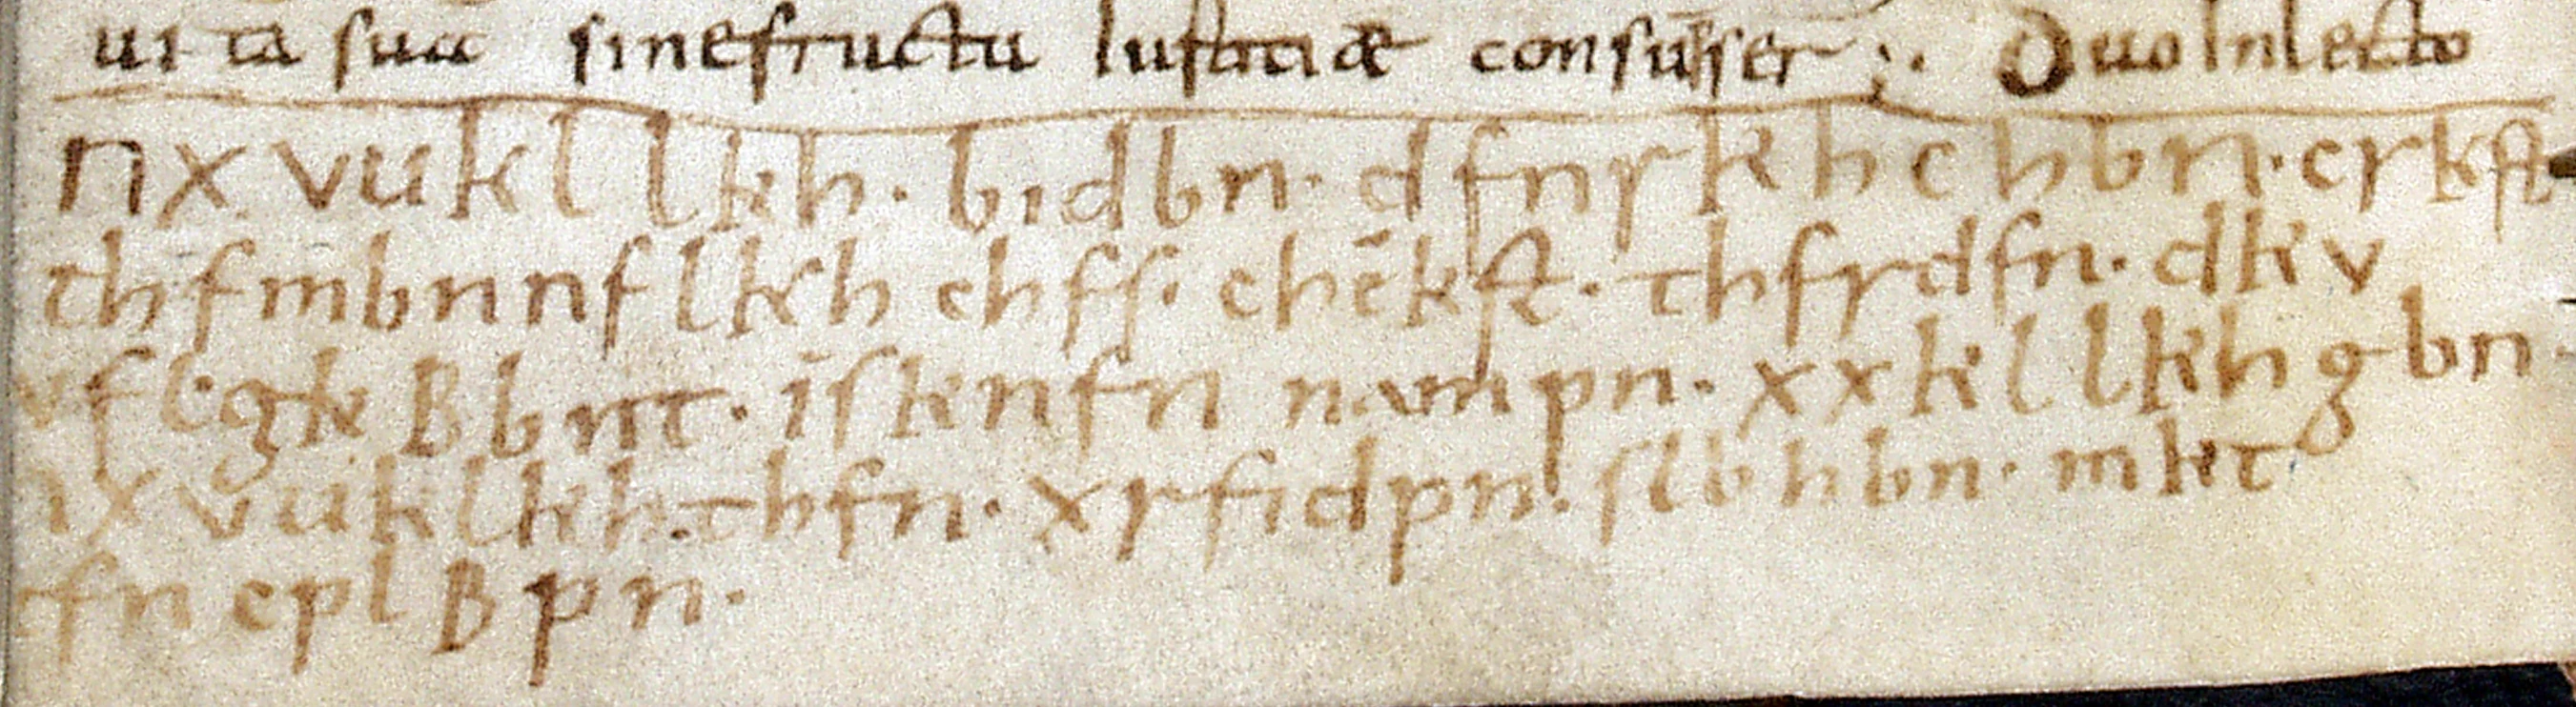 ui ta sua sinefructu Iustitiæ consūser ;. Duo Inlecto
nx vukllkh. bidbn. dfnrkhchbn. crkst
thfmbnnflkhchfs. chēkst. thfrdfn. dkv
vfl. gkBbnt. īsknfn nampn. xxkllkhgbn.
nx vuklkh. thfn. xrfidpn. slbhbn. mkt
tfn cplBpn.